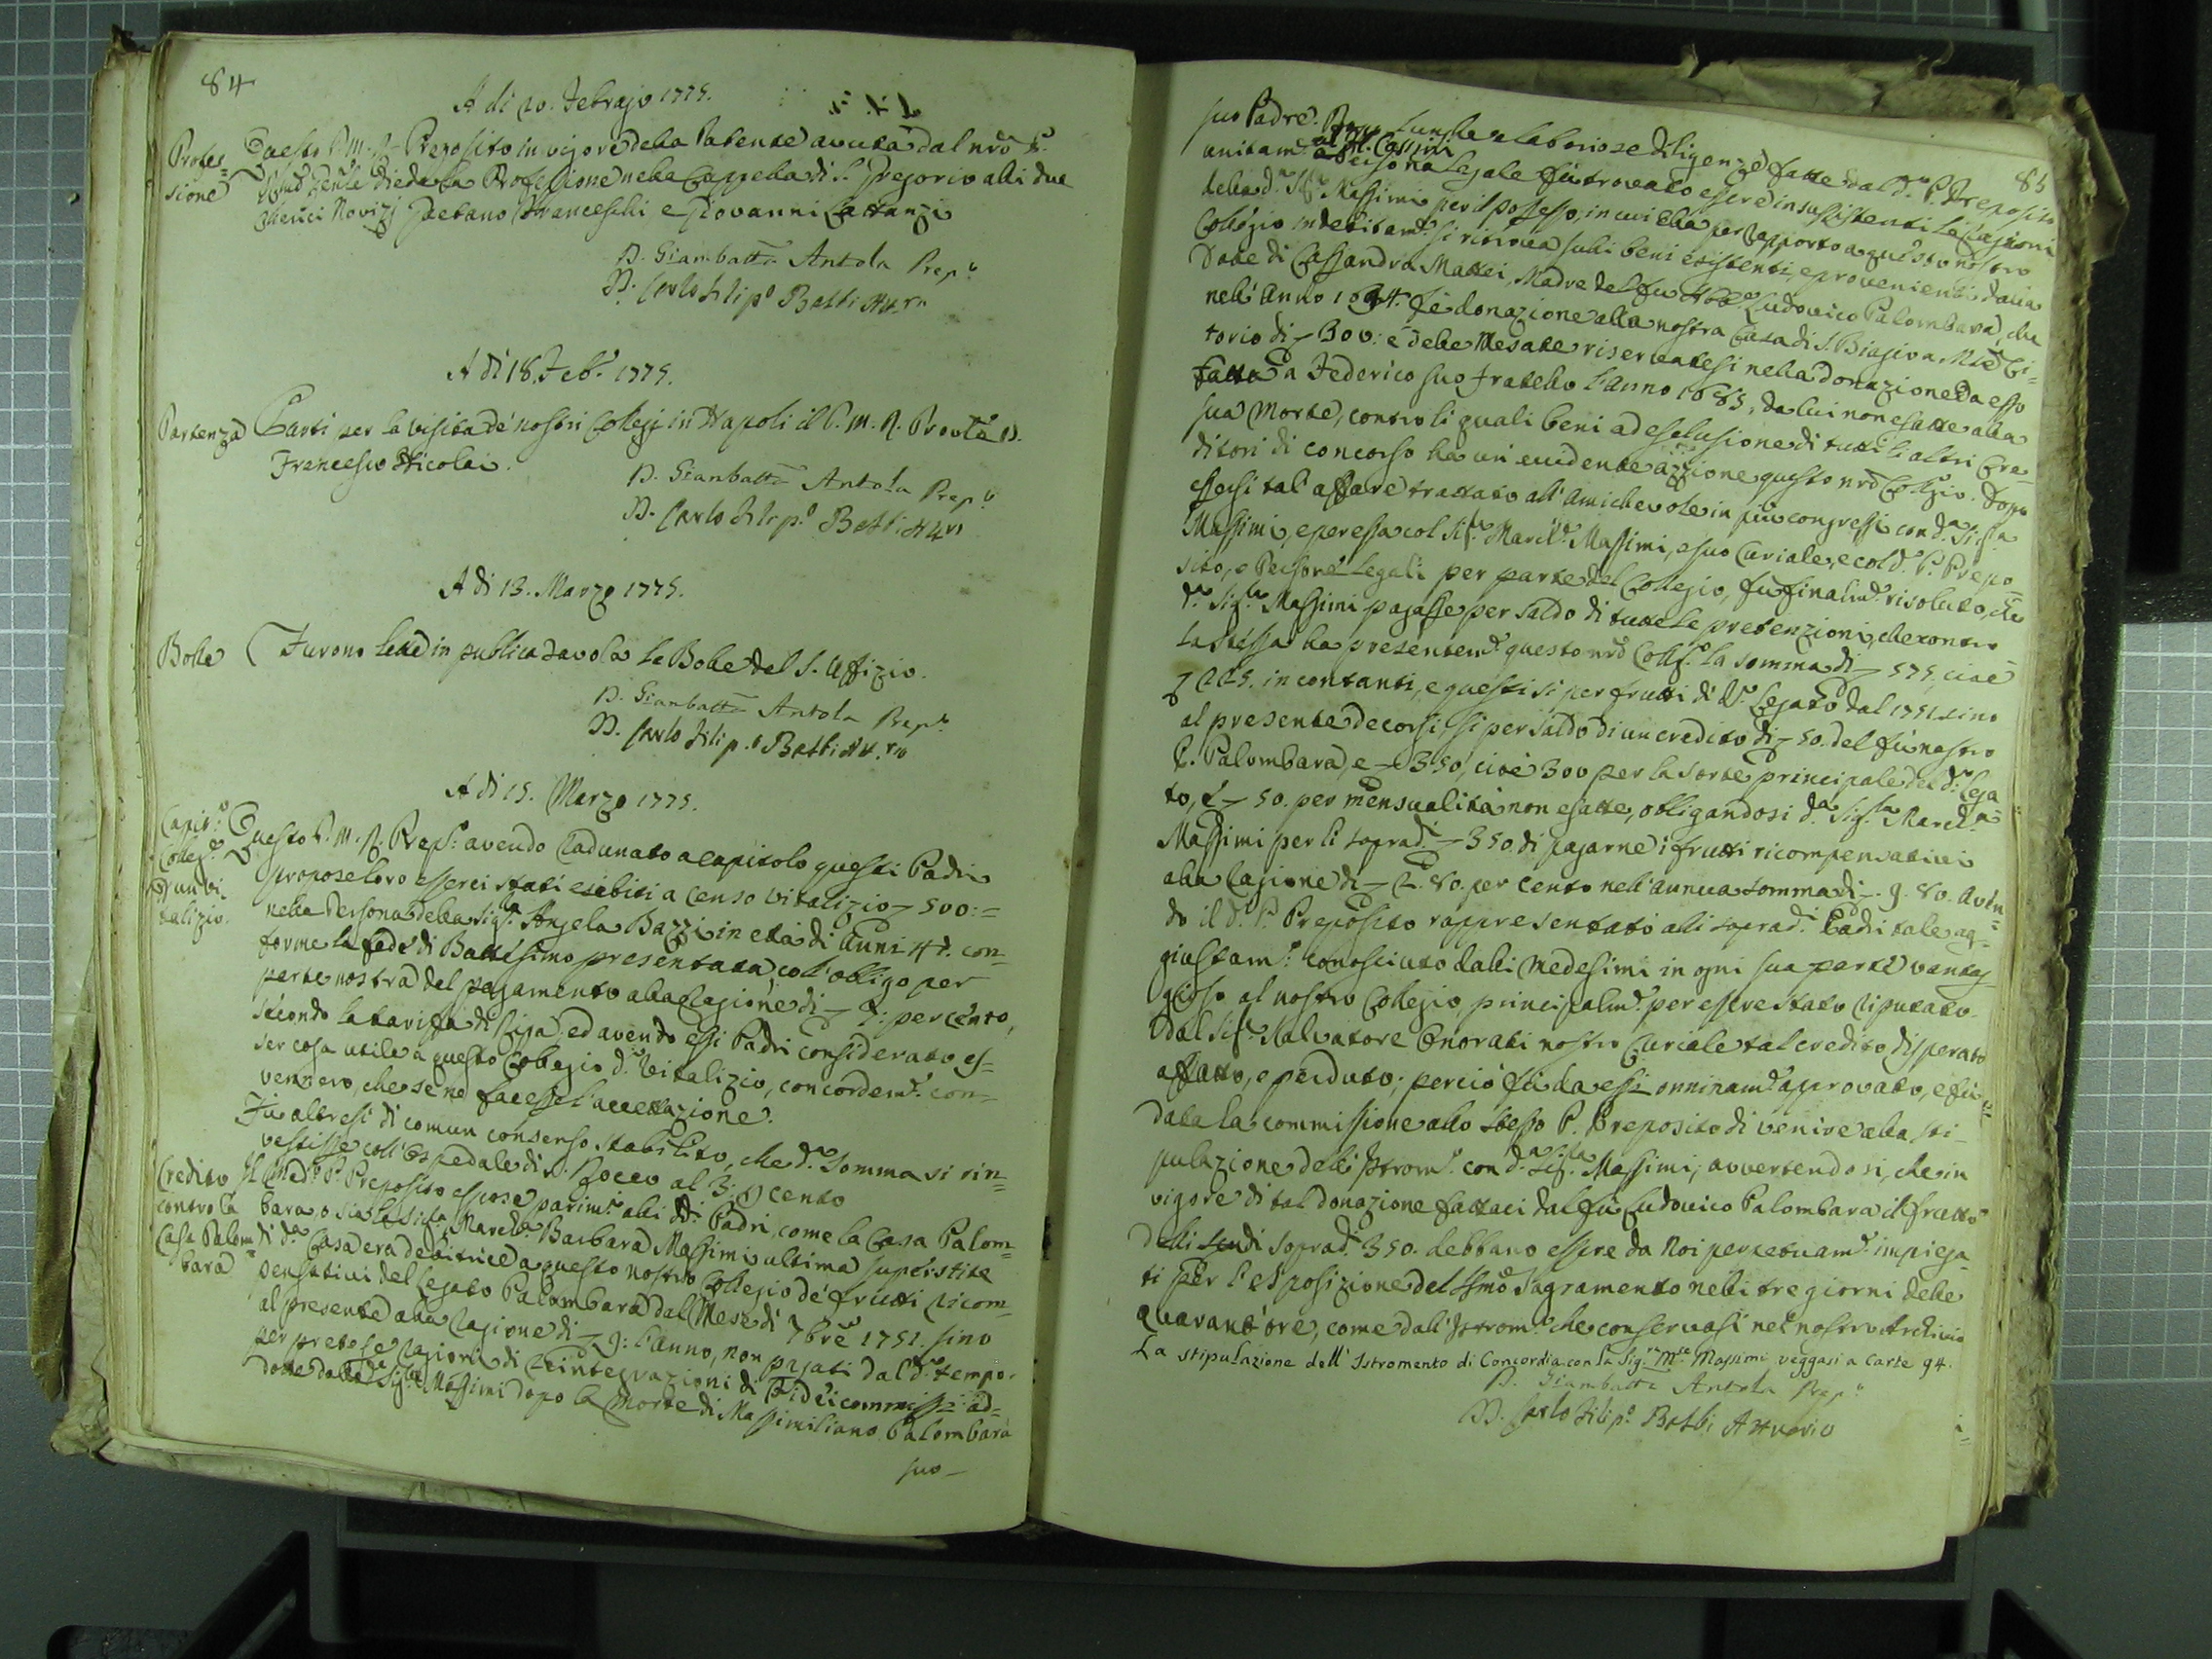 84
A di 20. Febrajo 1775.
Profes=
sione
Questo P. M. R. Preposito in vigore della Patente avuta dal nrõ P.
Gen̄le diede la Professione nella Cappella di S. Gregorio alli due
Chierici Novizj Gaetano Franceschi e Giovanni Cattanzi
D. Giambattã Antola Prep.º
D. Carlo Filip.º Bobbi Att.rio
A di 18. Feb.º 1775.
Partenza
Partì per la visita de' nostri Collegj in Napoli il P. M. R. Provle D.
Francesco Nicolai.
D. Giambattã Antola Prep.º
D. Carlo Filip.º Bobbi Att.rio
A di 13. Marzo 1775.
Bolle
Furono lette in publica tavola le Bolle del S. Uffizio.
D. Giambattã Antola Prep.º
D. Carlo Filip.º Bobbi Att.rio
A di 15. Marzo 1775.
Capit.º
Colleg.e
p un vi
talizio.
Questo P. M. R. Prep.º avendo radunato a capitolo questi Padri
propose loro esserci stati esibiti a censo vitalizio 500:=
nella Persona della Sig.ra Angela Bazzi in età di Anni 47. con=
forme la fede di Battesimo presentata coll'obligo per
parte nostra del pagamento alla ragione di 7: per cento,
secondo la tariffa di Ripa, ed avendo essi Padri considerato es=
ser cosa utile a questo Collegio d.º Vitalizio, concordem.e con=
vennero, che se ne facesse l'accettazione.
Fù altresì di comun consenso stabilito, che d.a Somma si rin=
vestisse coll'Ospedale di S. Rocco al 3: p cento
Credito
contro la
Casa Palom=
bara
Il med.º P. Preposito espose parim.e alli dd.i Padri, come la Casa Palom=
bara, o sia la Sig.ra March.a Barbara Massimi ultima superstite
di d.a Casa era debitrice a questo nostro Collegio de' frutti ricom=
pensativi del Legato Palombara dal Mese di 7bre 1751. sino
al presente alla ragione di 9: l'anno, non pagati dal d.º tempo
per pretese ragioni di reintegrazioni di Fideicommissi ad=
dotte dalla Sig.ra Massimi dopo la Morte di Massimiliano Palombara
suo
85
suo Padre. Dopo lunghe e laboriose diligenze fatte dal d.º P. Preposito
unitam.e al Sig. Cassini
a Persona legale fù trovato essere insussistenti le ragioni
della d.a Sig.ra Massimi per il possesso, in cui ella per rapporto a questo nostro
Collegio indebitam.e si ritrova sulli beni esistenti, e provenienti dalla
Dote di Cassandra Mattei, Madre del fu Ludovico Palombara, che
nell'Anno 1694. fè donazione alla nostra Casa di S. Biagio a M.te Ci=
torio di 300: e delle Mesate riservatesi nella donazione da esso
fatta a Federico suo fratello l'anno 1685, da lui non esatte alla
sua Morte, contro li quali beni ad esclusione di tutti li altri Cre=
ditori di concorso ha un evidente azzione questo nrõ Collegio. Dopo
essersi tal affare trattato all'amichevole in più congressi con d.a Sig.ra
Massimi, e per essa col Sig.r March.e Massimi, e suo Curiale, e col d.º P. Prepo=
sito, e Persone Legali per parte del Collegio, fù finalm.e risoluto, che
d.a Sig.ra Massimi pagasse per saldo di tutte le pretenzioni, che contro
la stessa ha presentem.e questo nrõ Colleg.º la somma di 575, cioè
225. in contanti, e questi sì per frutti di d.º Legato dal 1751. sino
al presente decorsi, sì per saldo di un credito di 50. del fù nostro
P. Palombara, e 350, cioè 300 per la sorte principale del d.º Lega
to, e 50. per mensualità non esatte, obligandosi d.a Sig.ra March.a
Massimi per li soprad.i 350 di pagarne i frutti ricompensativi
alla ragione di 2. 80. per cento nell'annua somma di 9. 80. Aven=
do il d.º P. Preposito rappresentato alli soprad.i Padri tale ag=
giustam.º conosciuto dalli medesimi in ogni sua parte vantag
gioso al nostro Collegio, principalm.e per essere stato riputato
dal Sig.r Salvatore Onorati nostro Curiale tal credito disperato
affatto, e perduto; perciò fù da essi onninam.e approvato, e fù
data la commissione allo stesso P. Preposito di venire alla sti=
pulazione dell'Istrom.º con d.a Sig.ra Massimi; avvertendosi, che in
vigore di tal donazione fattaci dal fù Ludovico Palombara il frutto
delli scudi soprad.i 350. debbano essere da Noi perpetuam.e impiega=
ti per l'esposizione del Ssmo Sagramento nelli tre giorni delle
Quarant'ore, come dall'Istrom.º che conservasi nel nostro Archivio
La stipulazione dell'Istromento di Concordia con la Sig.ra M.sa Massimi veggasi a Carte 94.
D. Giambattã Antola Prep.º
D. Carlo Filip.º Bobbi Attuario